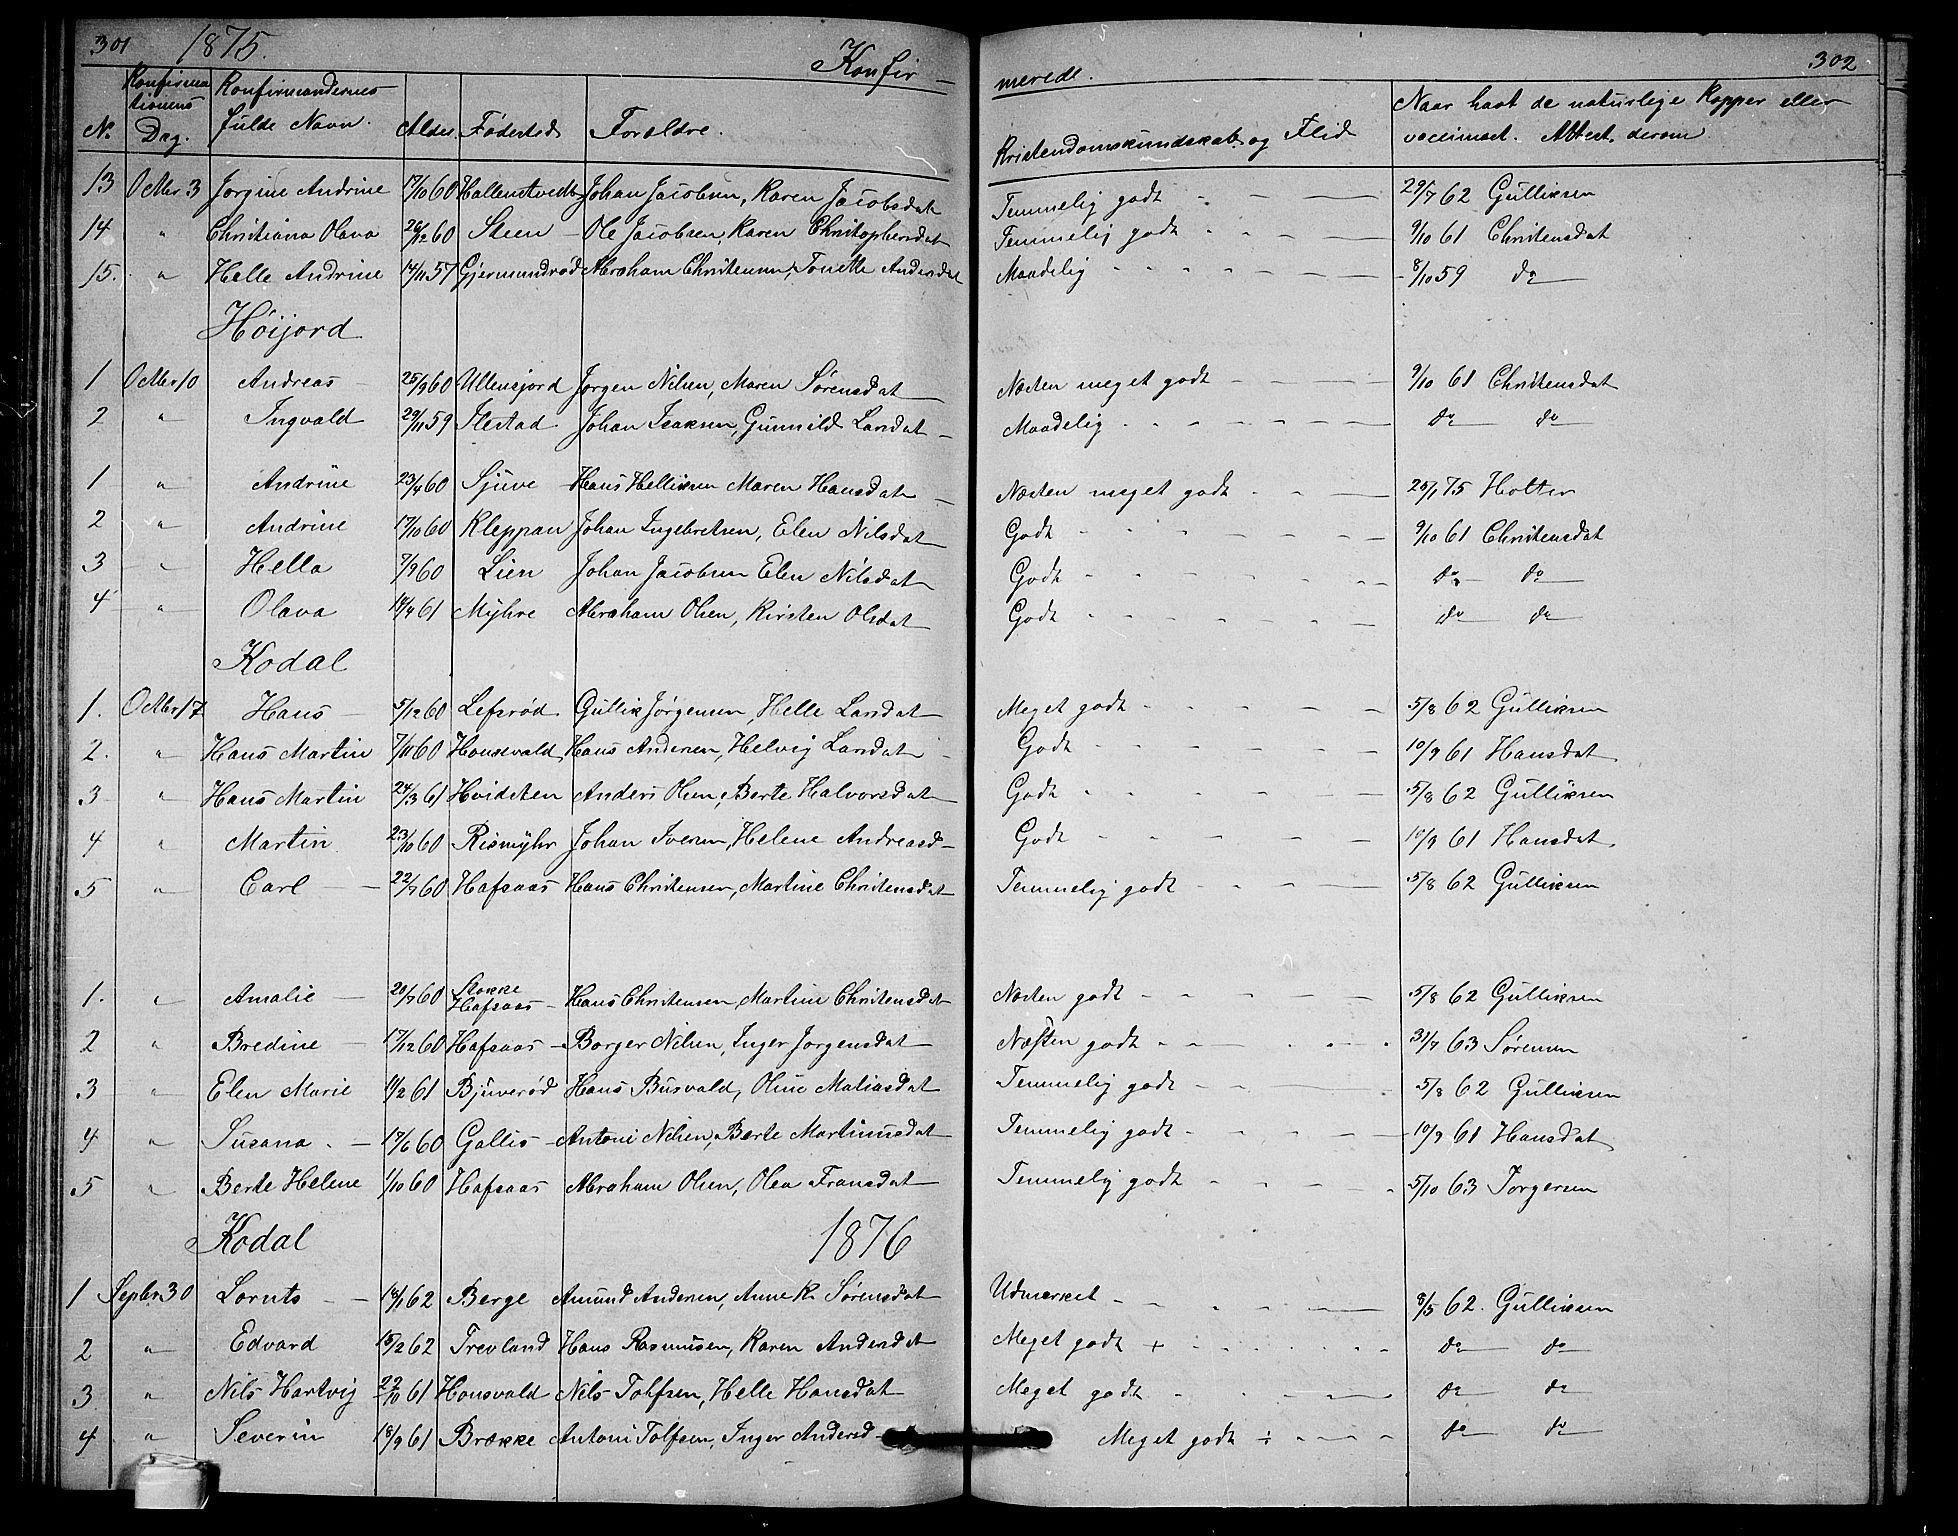 301 1875. Konfir- merede. 302
No. Konfirmationens Dag. Konfirmandernes fulde Navn. Alder Fødested Forældre. Kristendomskundskab og Flid Naar havt de naturlige Kopper eller vaccineret. Attest derom
13 Octbr 3 Jørgine Andrine 17/10 60 Hallenstvedt Johan Jacobsen, Karen Jacobsdat Temmelig godt 29/7 62 Gulliksen
14 " Christiana Olava 26/12 60 Steen Ole Jacobsen, Karen Christophersdat Temmelig godt 9/10 61 Christensdat
15. " Helle Andrine 14/11 57 Gjermundrød Abraham Christensen, Tonette Andersdat Maadelig 8/10 59 do
Høijord
1 Octbr 10 Andreas 25/9 60 Ullensjord Jørgen Nilsen, Maren Sørensdat Næsten meget godt 9/10 61 Christensdat
2 " Ingvald 29/11 59 Ilestad Johan Isaksen, Gunnild Larsdat Maadelig do do
1 " Andrine 23/4 60 Sjuve Hans Helliksen Maren Hansdat Næsten meget godt 25/1 75 Holter
2 " Andrine 17/10 60 Kleppan Johan Ingebretsen, Elen Nilsdat Godt 9/10 61 Christensdat
3 " Hella 7/9 60 Lien Johan Jacobsen Elen Nilsdat Godt do do
4 " Olava 14/4 61 Myhre Abraham Olsen, Kirsten Olsdat Godt do do
Kodal
1. Octbr 17 Hans 5/12 60 Lefsrød Gullik Jørgensen, Helle Larsdat Meget godt 5/8 62 Gulliksen
2. " Hans Martin 7/11 60 Honsvald Hans Andersen, Helvig Larsdat Godt 10/9 61 Hansdat
3 " Hans Martin 24/3 61 Hvidsten Anders Olsen, Berte Halvorsdat Godt 5/8 62 Gulliksen
4 " Martin 23/10 60 Rismyhr Johan Iversen, Helene Andreasd Godt 10/9 61 Hansdat
5 " Carl 22/7 60 Hafsaas Hans Christensen, Martine Christensdat Temmelig godt 5/8 62 Gulliksen
1. " Amalie 20/7 60 Stokke Hafsaas Hans Christensen, Martine Christensdat Næsten godt 5/8 62 Gulliksen
2 " Bredine 17/12 60 Hafsaas Borger Nilsen, Inger Jørgensdat Næsten godt 31/7 63 Sørensen
3 " Elen Marie 11/2 61 Bjuverød Hans Busvald, Oline Matiasdat Temmelig godt 5/8 62 Gulliksen
4 " Susana 17/6 60 Gallis Antoni Nilsen, Berte Martinusdat Temmelig godt 10/9 61 Hansdat
5 " Berte Helene 1/10 60 Hafsaas Abraham Olsen, Olea Fransdat Temmelig godt 5/10 63 Torgersen
Kodal 1876
1 Septbr 30 Lornts 18/1 62 Berge Amund Andersen, Anne K. Sørensdat Udmærket 8/5 62. Gulliksen
2 " Edvard 15/2 62 Trevland Hans Rasmusen, Karen Andersdat Meget godt + do do
3 " Nils Hartvig 22/10 61 Honsvald Nils Tolfsen, Helle Hansdat Meget godt do do
4 " Severin 18/9 61 Brække Antoni Tolfsen, Inger Andersd Meget godt ÷ do do